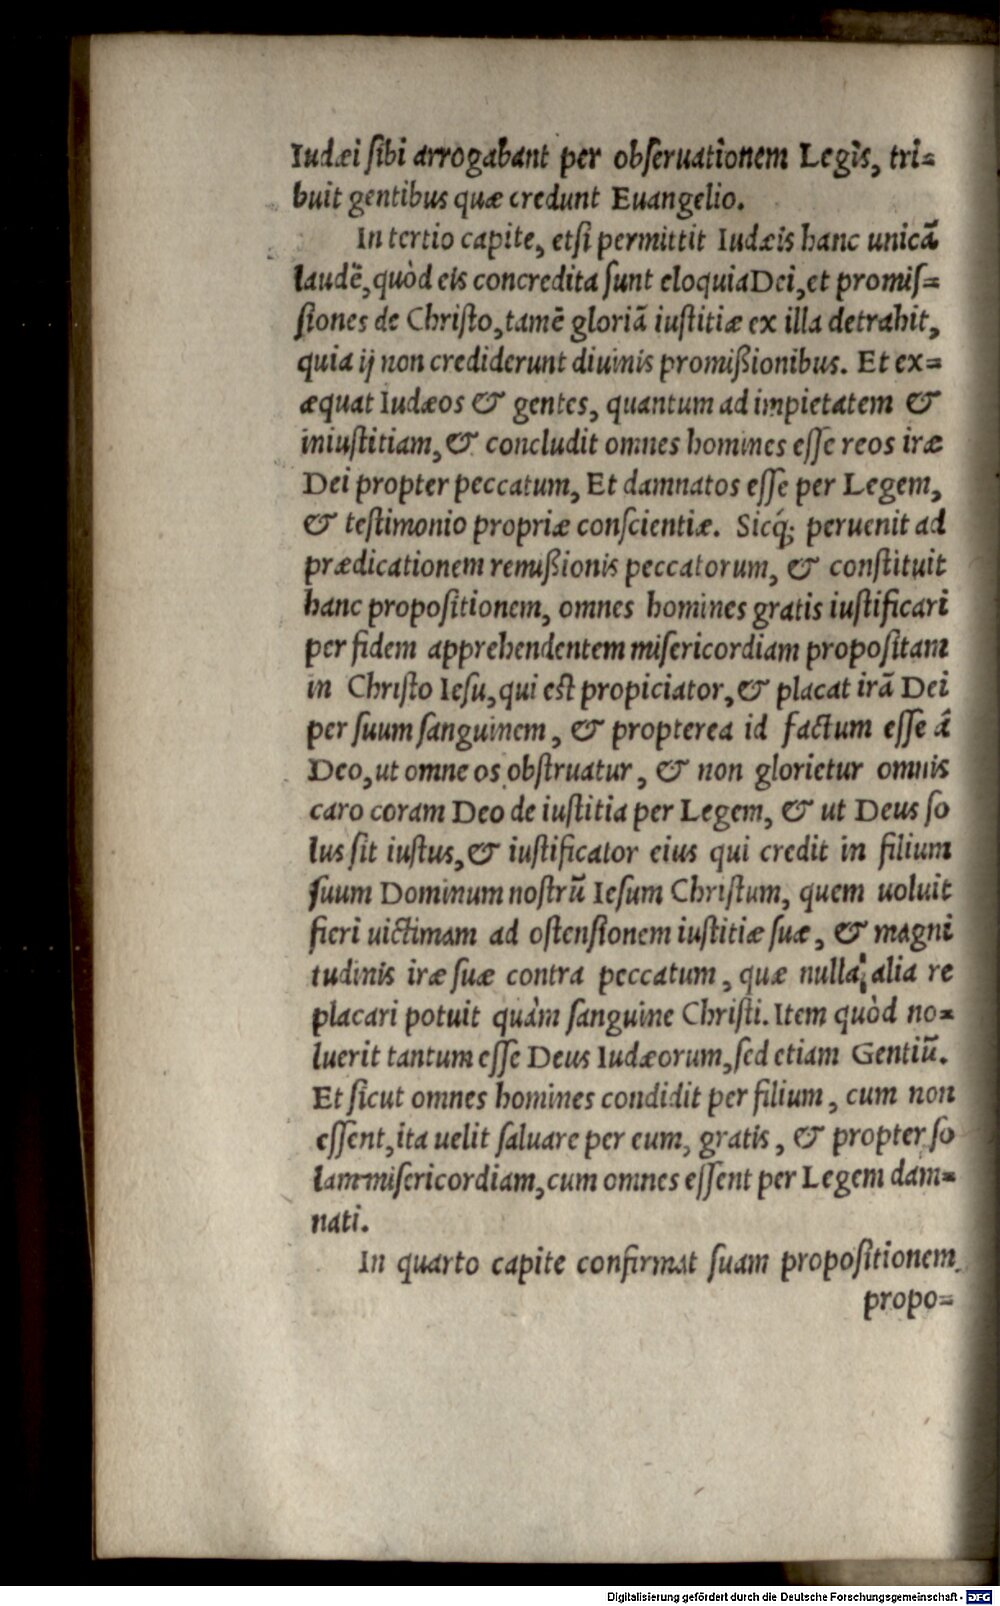 Iudæi ſibi arrogabant per obſeruationem Legis, tri=
buit gentibus quæ credunt Euangelio.
In tertio capite, etſi permittit Iudæis hanc unicã
laudẽ, quòd eis concredita ſunt eloquia Dei, et promiſ=
ſiones de Chriſto, tamẽ gloriã iuſtitiæ ex illa detrahit,
quia ij non crediderunt diuinis promißionibus. Et ex=
æquat Iudæos & gentes, quantum ad impietatem &
iniuſtitiam, & concludit omnes homines eſſe reos iræ
Dei propter peccatum, Et damnatos eſſe per Legem,
& teſtimonio propriæ conſcientiæ. Sicq́; peruenit ad
prædicationem remißionis peccatorum, & conſtituit
hanc propoſitionem, omnes homines gratis iuſtificari
per fidem apprehendentem miſericordiam propoſitam
in Chriſto Ieſu, qui eſt propiciator, & placat irã Dei
per ſuum ſanguinem, & propterea id factum eſſe á
Deo, ut omne os obſtruatur, & non glorietur omnis
caro coram Deo de iuſtitia per Legem, & ut Deus ſo
lus ſit iuſtus, & iuſtificator eius qui credit in filium
ſuum Dominum noſtrũ Ieſum Chriſtum, quem uoluit
fieri uictimam ad oſtenſionem iuſtitiæ ſuæ, & magni
tudinis iræ ſuæ contra peccatum, quæ nulla alia re
placari potuit quàm ſanguine Chriſti. Item quòd no=
luerit tantum eſſe Deus Iudæorum, ſed etiam Gentiũ.
Et ſicut omnes homines condidit per filium, cum non
eſſent, ita uelit ſaluare per eum, gratis, & propter ſo
lam miſericordiam, cum omnes eſſent per Legem dam=
nati.
In quarto capite confirmat ſuam propoſitionem
propo=
Digitalisierung gefördert durch die Deutsche Forschungsgemeinschaft - DFG